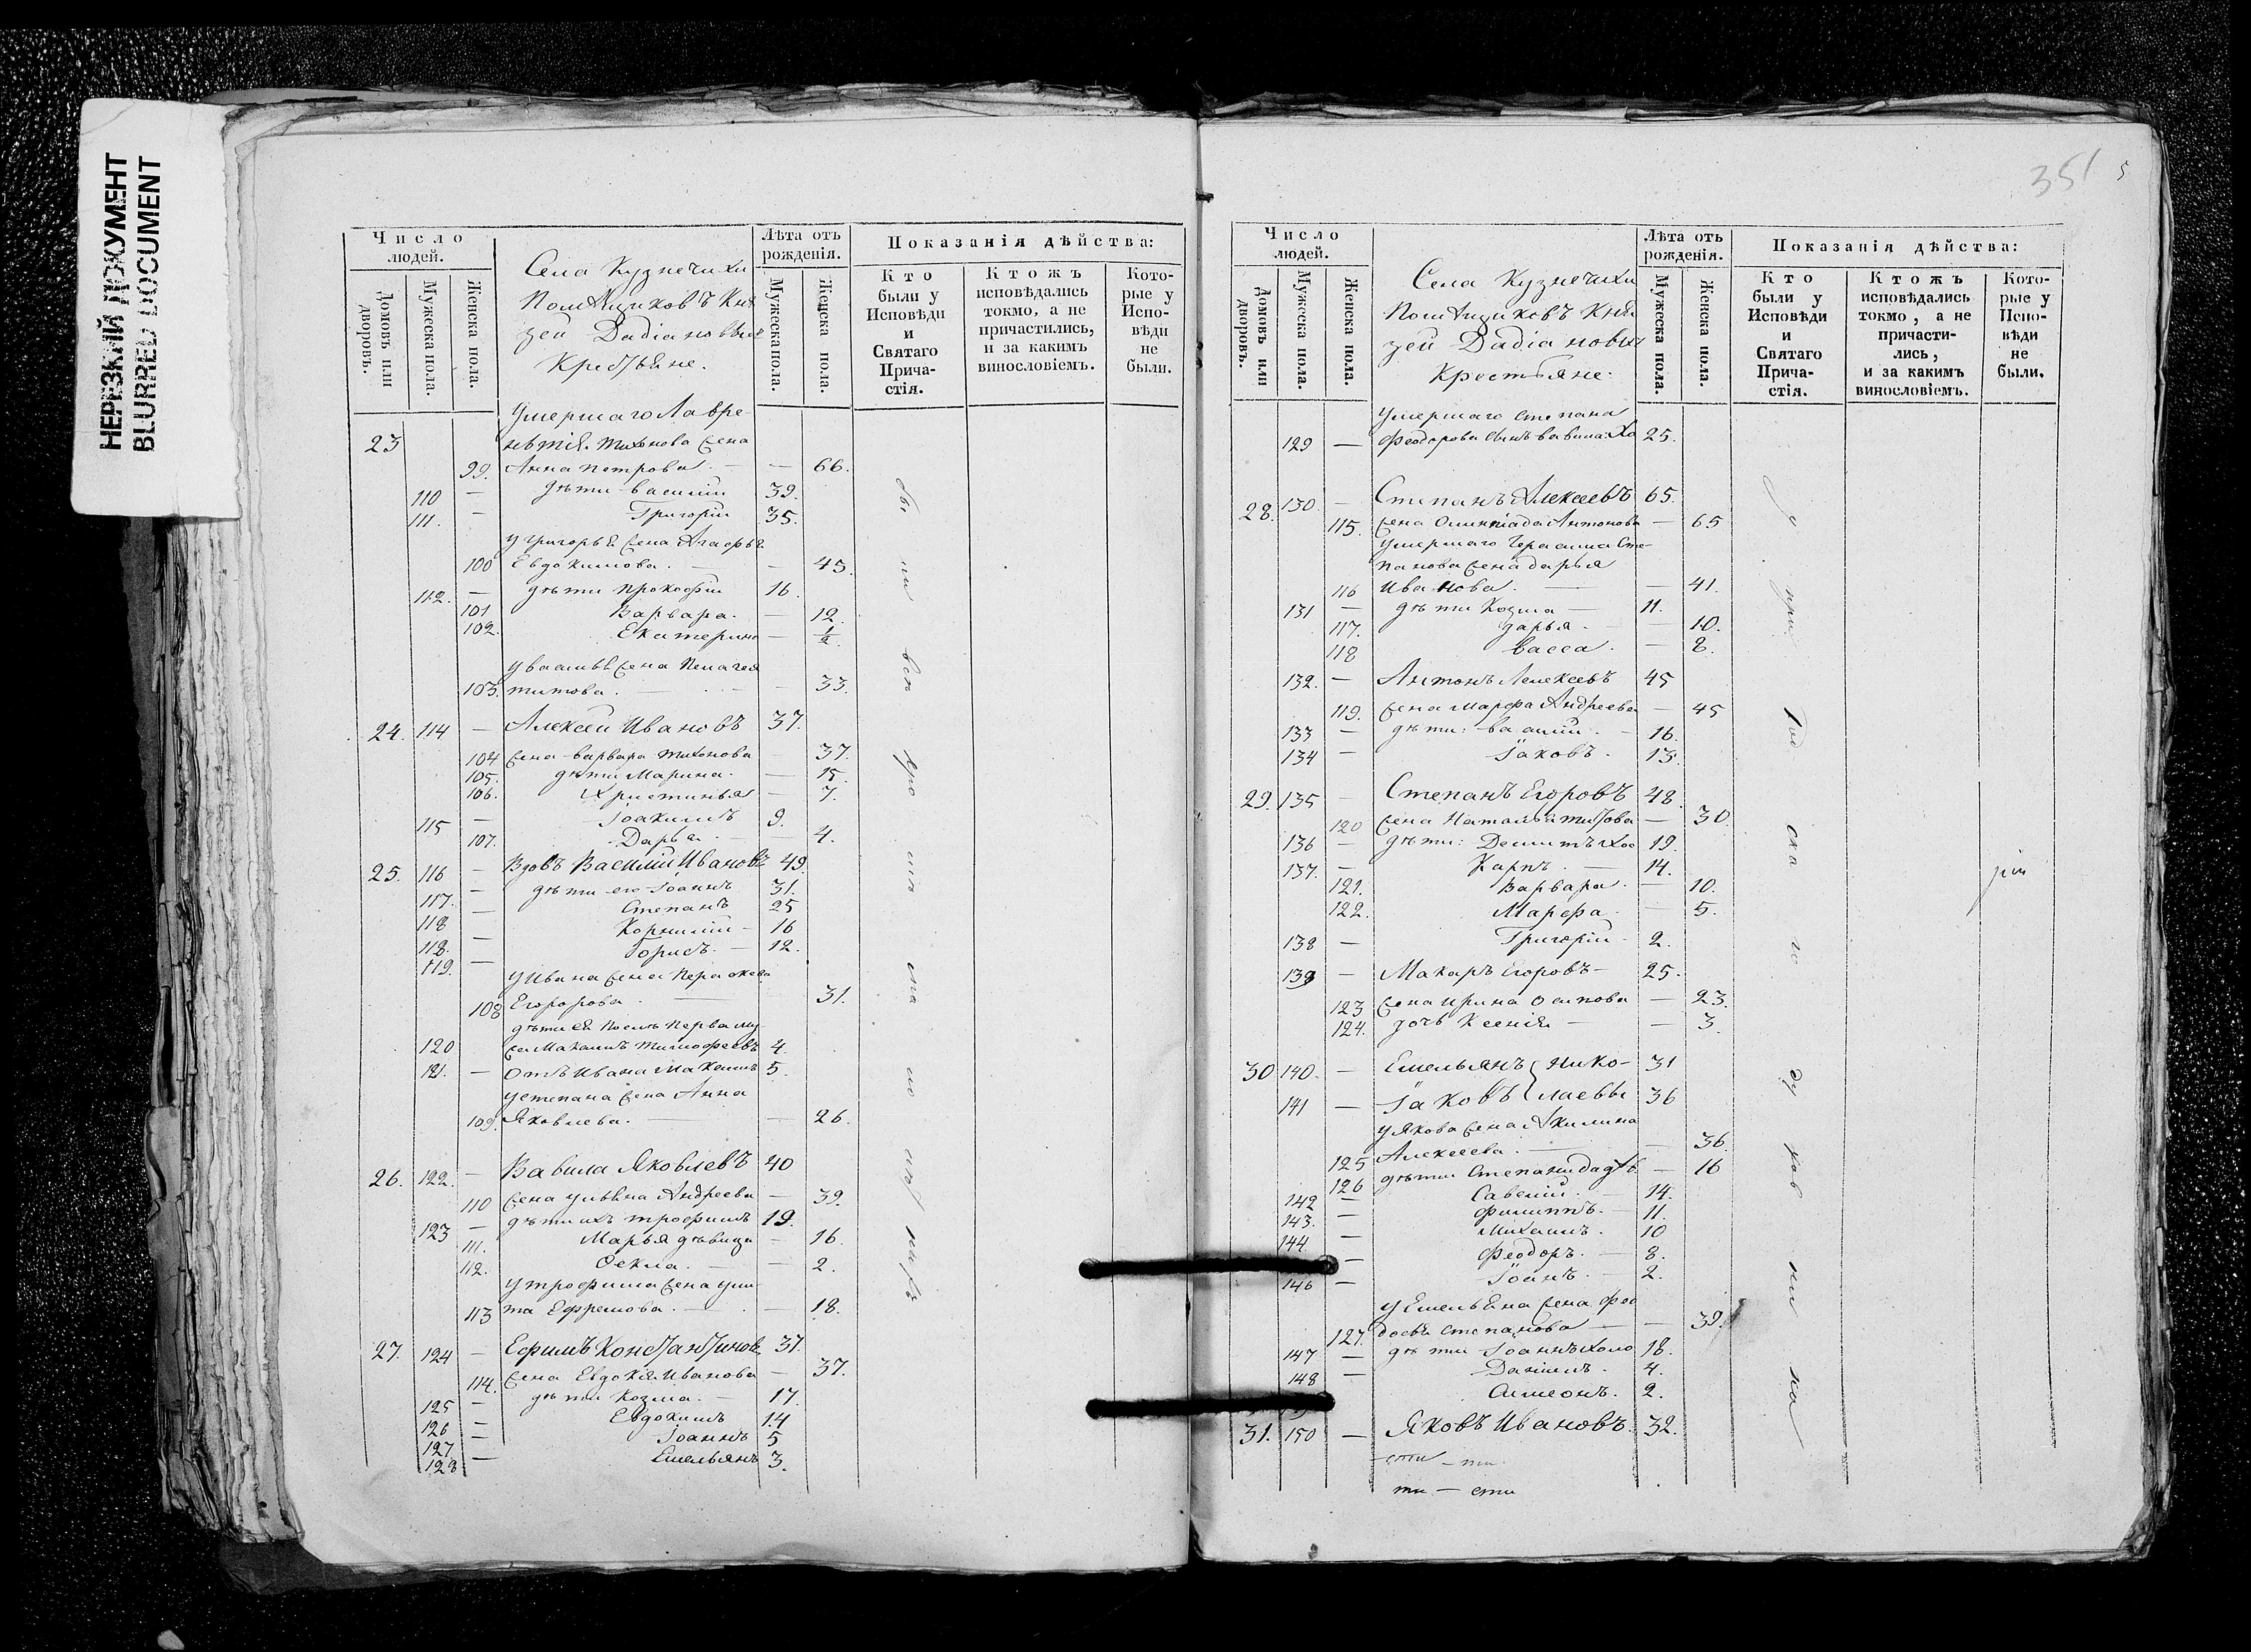 НЕРІЗКИЙ ДОКУМЕНТ
BLURRED DOCUMENT
Число людей.
Домовъ или дворовъ.
Мужеска пола.
Женска пола.
Села Кузнечихи
Помѣщиковъ Кня
зей Dadiановыхъ
Крестьяне.
Лѣта отъ рожденія.
Мужеска пола.
Женска пола.
Показанія дѣйства:
Кто были у Исповѣди и Святаго Причастія.
Ктожъ исповѣдались токмо, а не причастились, и за какимъ винословіемъ.
Которые у Исповѣди не были.
Умершаго Лавре-
23 нътія Тихонова жена
99. Анна Петрова. — — 66.
110 — дѣти Василий 39.
111. — Григорій 35.
у Григорья жена Агафья
100 Евдокимова. — — 45.
112. — дѣти Прокофій 16.
101 Варвара. — 12.
102. Екатерина — ½
у Василья жена Пелагея
103. титова. — — 33.
24. 114 — Алексей Ивановъ 37.
104 жена Варвара Тихонова — 37.
105. дѣти Марина. — 15.
106. Христинья — 7.
115 — Іоакимъ 9.
107. Дарья. — 4.
25. 116 — Вдовъ Василий Ивановъ 49.
117. — дѣти его Іоаннъ 31.
118 — Степанъ 25
118. — Корнилій — 16
119. — Борисъ. — 12.
у Ивана жена Парасковья
108 Егорова. — 31.
дѣти ея после перваго му
120 жа Максимъ Тимофеевъ 4.
121. — отъ Ивана Максимъ 5.
у Степана жена Анна
109. Яковлева. — — 26.
26. 122. — Вавила Яковлевъ 40
110 жена Ульяна Андреева — 39.
123 — дѣти ихъ Трофимъ 19.
111. Марья дѣвица — 16.
112. Фекла. — — 2.
у Трофима жена Ули
113 та Ефремова. — — 18.
27. 124 — Ефимъ Константиновъ 37.
114. жена Евдокія Иванова — 37.
125 — дѣти Козма. — 17.
126 — Евдокимъ 14
127 — Іоаннъ 5
128 — Емельянъ 3.
351
5
Число людей.
Домовъ или дворовъ.
Мужеска пола.
Женска пола.
Села Кузнечихи
Помѣщиковъ Кня
зей Dadiановыхъ
Крестьяне.
Лѣта отъ рожденія.
Мужеска пола.
Женска пола.
Показанія дѣйства:
Кто были у Исповѣди и Святаго Причастія.
Ктожъ исповѣдались токмо, а не причастились, и за какимъ винословіемъ.
Которые у Исповѣди не были.
Умершаго Степана
129 — Феодорова сынъ Вавила Хо 25.
28. 130. — Степанъ Алексеевъ 65.
115. жена Олимпіада Антонова — 65
Умершаго Герасима Сте-
панова жена Дарья
116 Иванова. — — 41.
131 — дѣти Козма — 11.
117. Дарья. — 10.
118 Васса. — 8.
132. — Антонъ Алексеевъ 45
119. жена Марфа Андреева — 45
133 — дѣти: Василий. — 16.
134 — Іаковъ. 13.
29. 135 — Степанъ Егоровъ 48.
120 жена Наталья Титова — 30.
136 — дѣти: Демитъ Хо 19.
137. — Карпъ. — 14.
121. Варвара. — 10.
122. Марфа — 5.
138 — Григорій — 2.
139 — Макаръ Егоровъ — 25.
123 жена Ирина Осипова — 23.
124. дочь Ксенія — — 3.
30 140. — Емельянъ Нико- 31
141 — Іаковъ лаевы 36
у Якова жена Акилина
125 Алексеева. — — 36
126 дѣти Степанида дѣв. — 16
142 — Савелий. — 14.
143. — Филиппъ. — 11.
144 — Михаилъ. 10
— Феодоръ. — 8.
146 — Іоаннъ. — 2.
у Емельяна жена Фео
127. досья Степанова — — 39.
147 — дѣти Іоаннъ холо 18.
148 — Даніилъ. 4.
Симеонъ. 2.
31. 150 — Яковъ Ивановъ. 32.
сти — ти
ти — сти